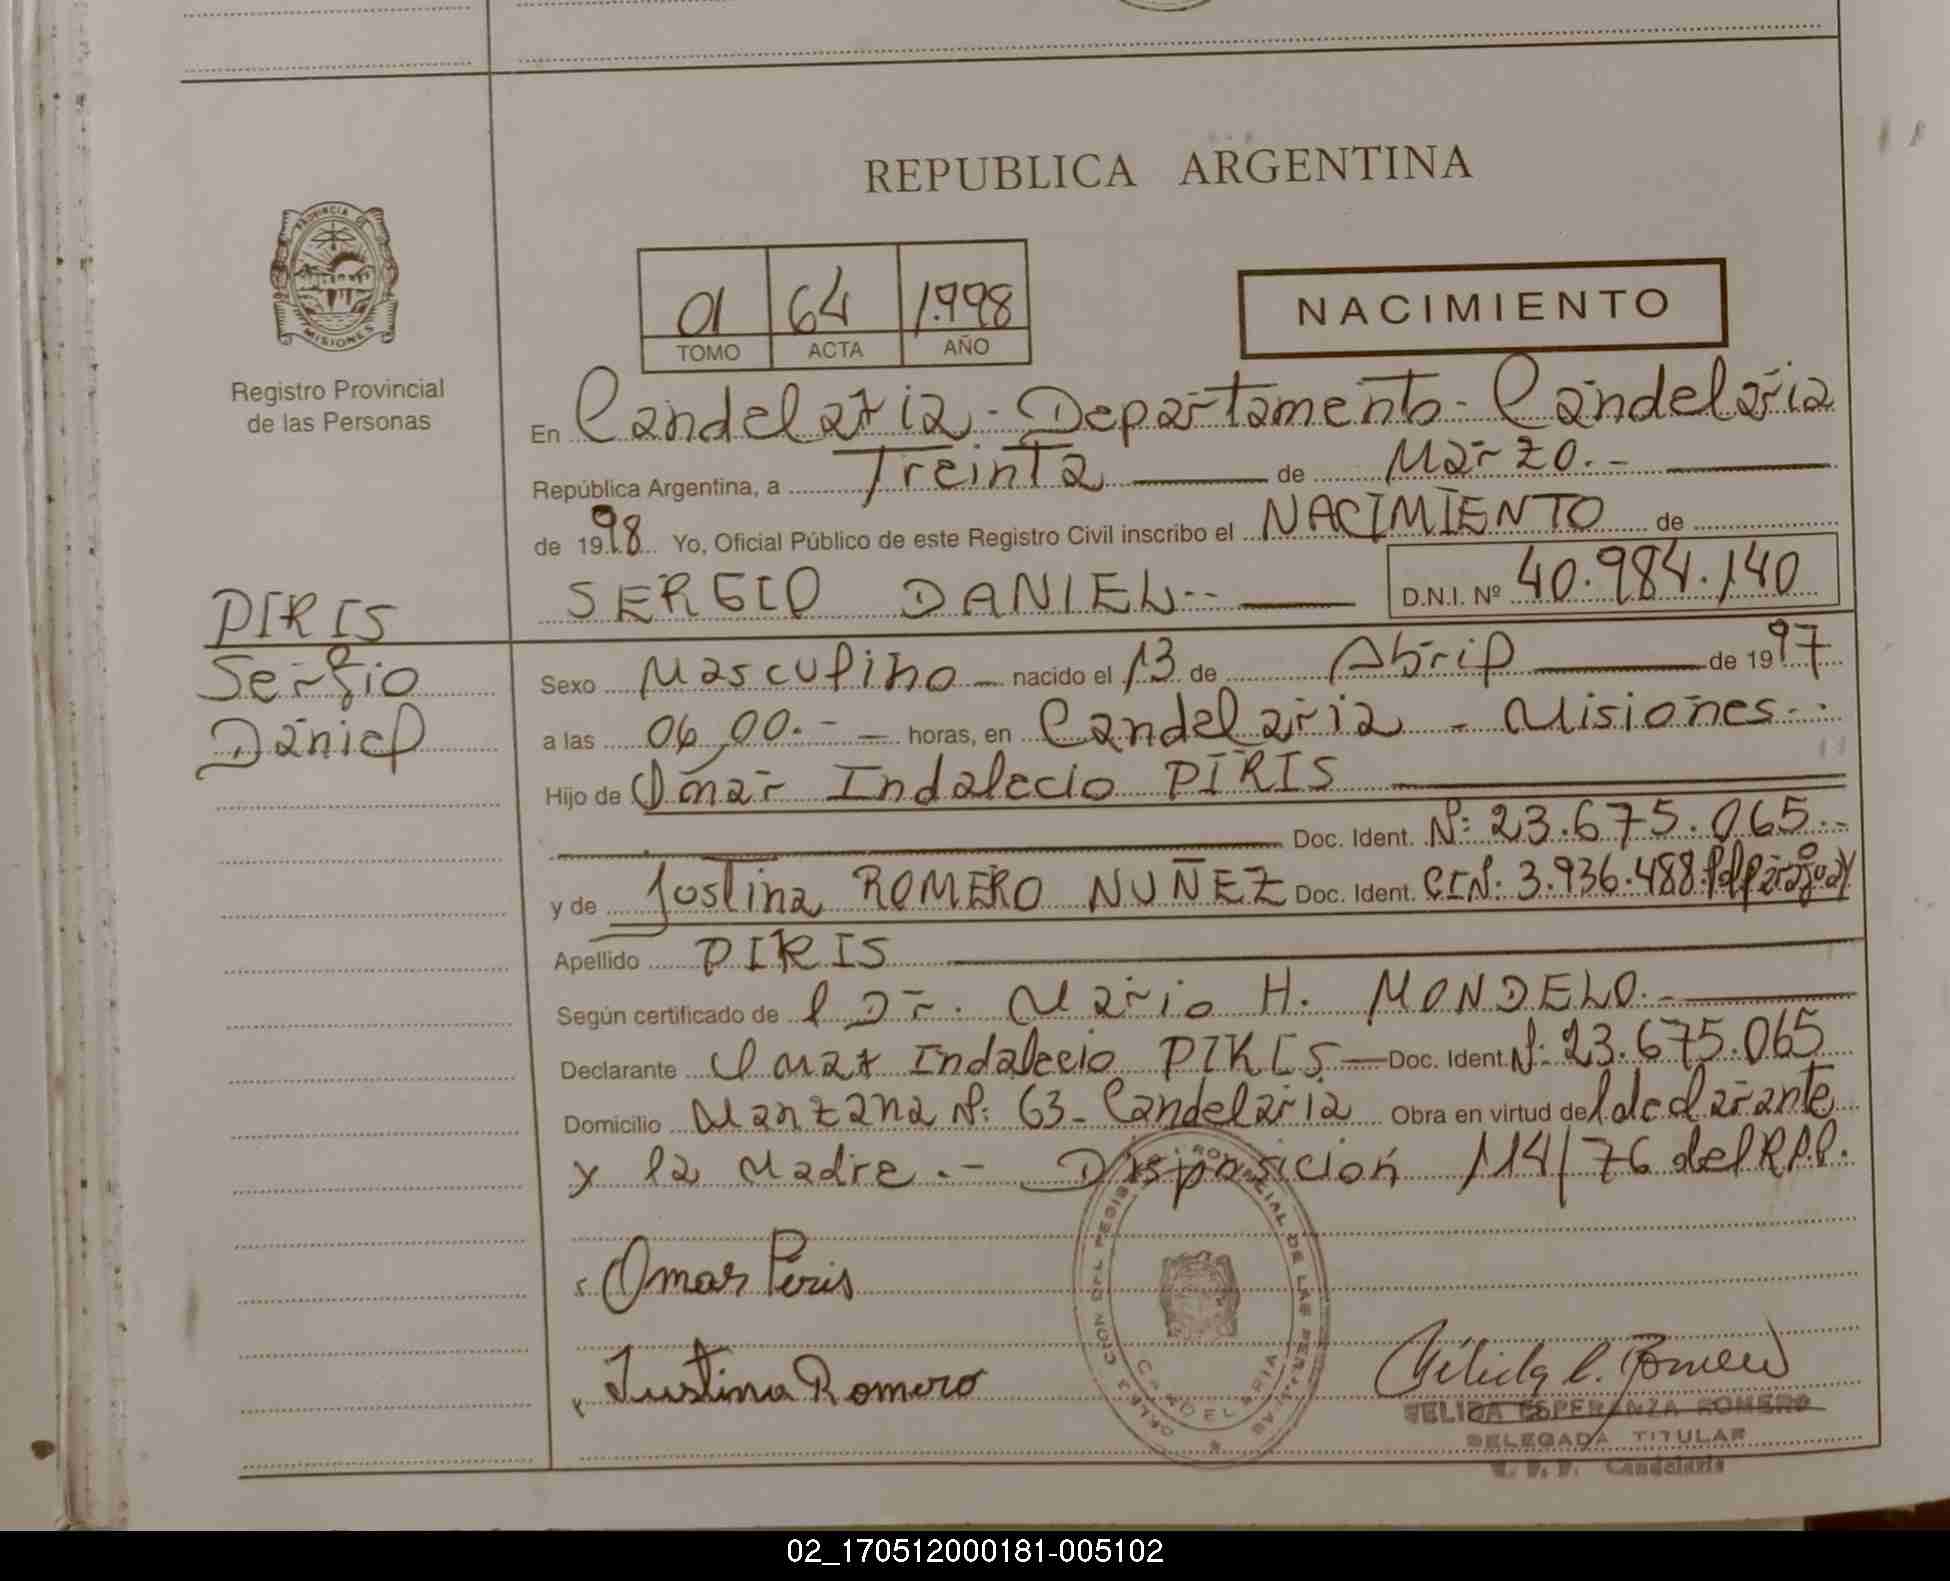 PROVINCIA DE
MISIONES
Registro Provincial
de las Personas
PIRIS
Sergio
Daniel
REPUBLICA ARGENTINA
01 64 1.998
TOMO ACTA AÑO
NACIMIENTO
En Candelaria - Departamento - Candelaria
República Argentina, a Treinta de Marzo.-
de 1998 Yo, Oficial Público de este Registro Civil inscribo el NACIMIENTO de
SERGIO DANIEL-- D.N.I. Nº 40.984.140
Sexo Masculino nacido el 13 de Abril de 1997
a las 06,00.- horas, en Candelaria - Misiones--
Hijo de Omar Indalecio PIRIS
Doc. Ident. Nº: 23.675.065.-
y de Justina ROMERO NUÑEZ Doc. Ident. CIN: 3.936.488 Pol Paraguay
Apellido PIRIS
Según certificado de l Dr. Mario H. MONDELO.-
Declarante Omar Indalecio PIRIS Doc. Ident. Nº: 23.675.065
Domicilio Manzana Nº: 63 - Candelaria Obra en virtud de l declarante
y la Madre.- Disposición 114/76 del R.P.P.
Omar Peris
Justina Romero
CANDELARIA
Nélida E. Romero
NELIDA ESPERANZA ROMERO
DELEGADA TITULAR
R. P. P. Candelaria
02_170512000181-005102